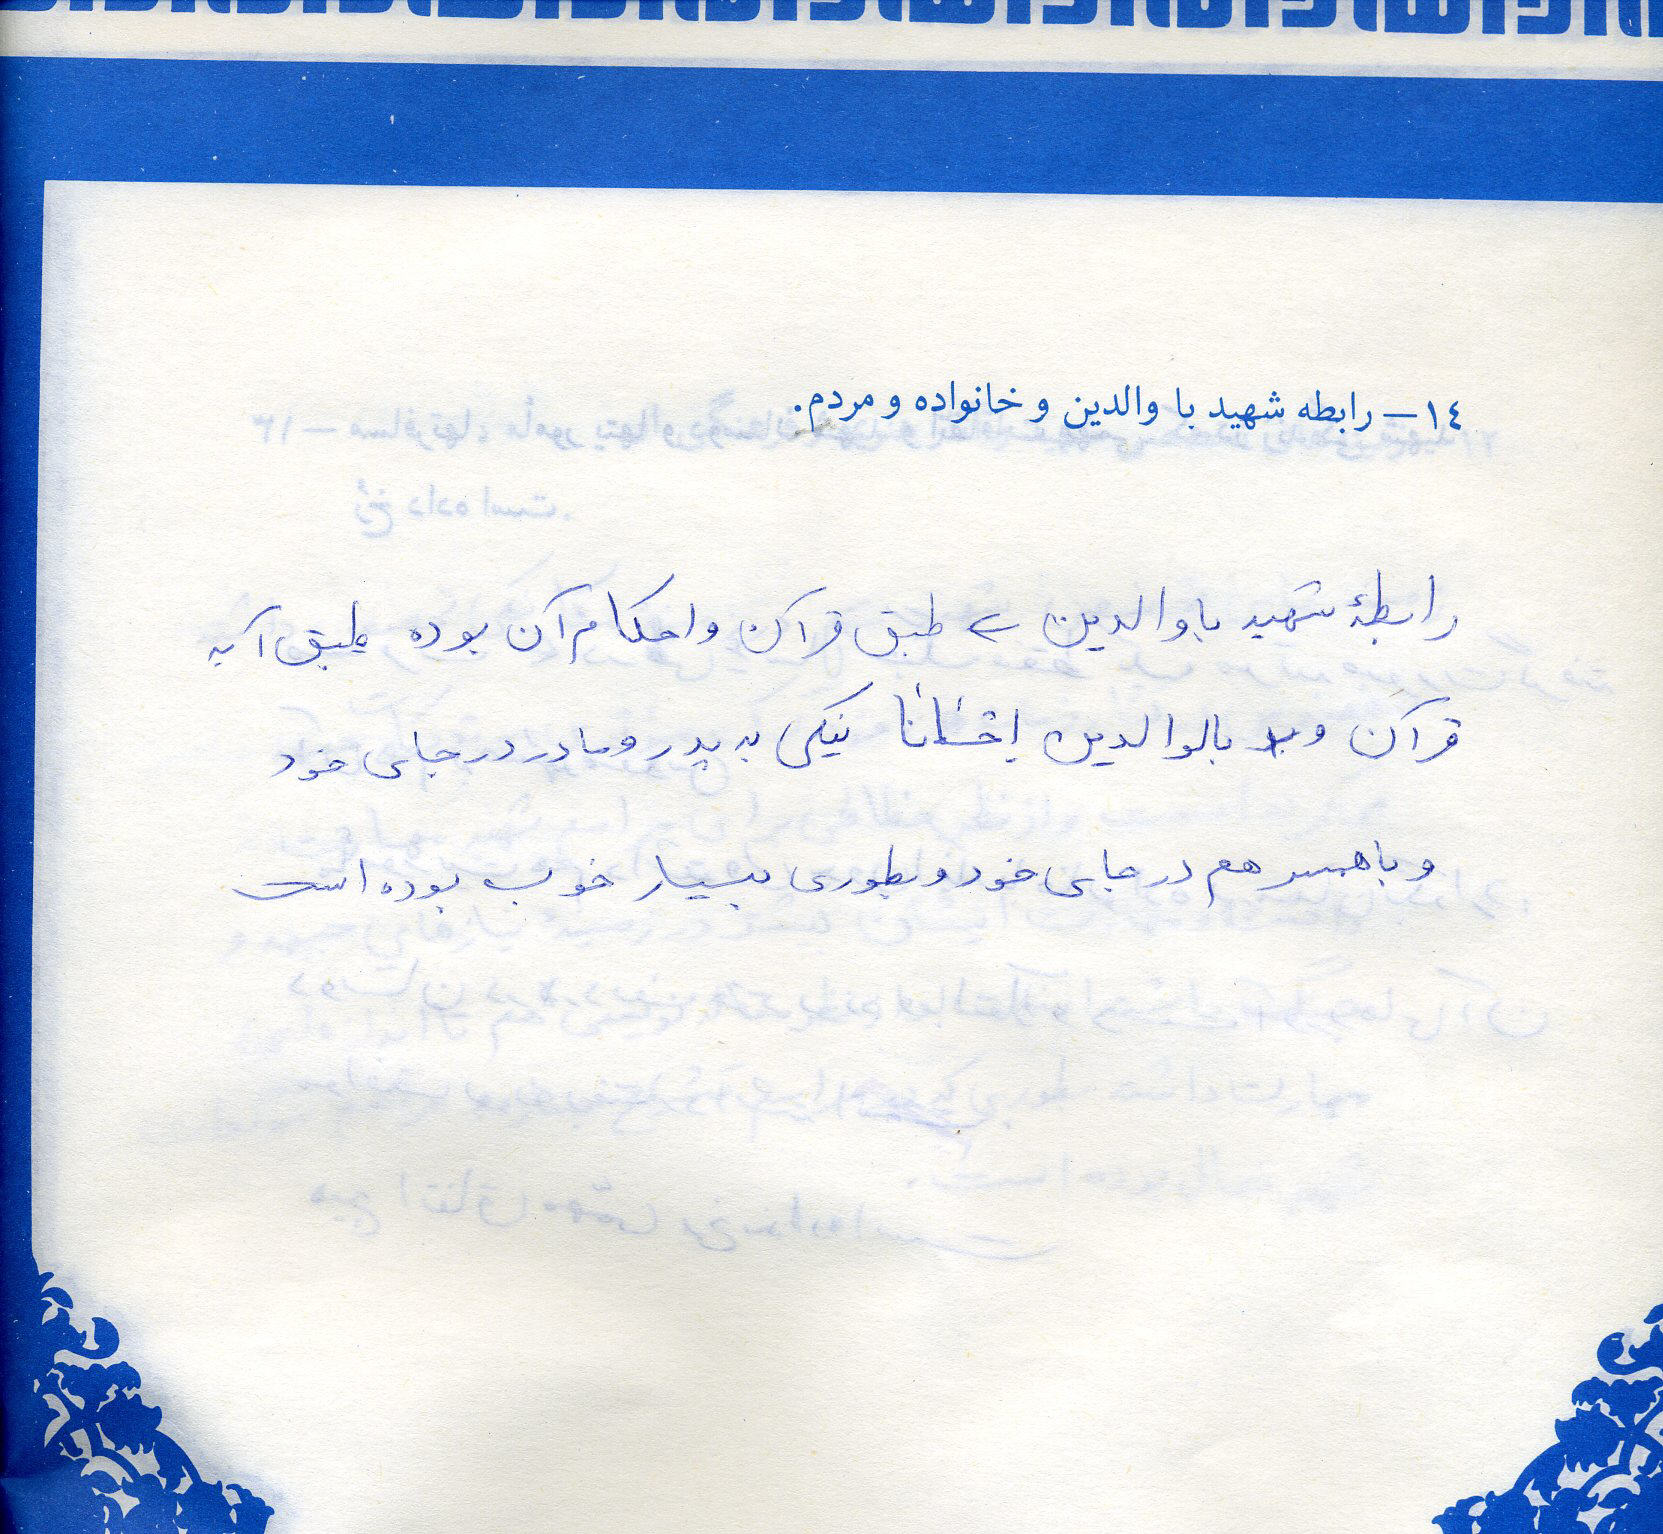 ١٤– رابطه شهید با والدین و خانواده و مردم.
رابطهٔ شهید با والدین طبق قرآن و احکام قرآن بوده طبق آیه
قرآن و بالوالدین اِحْسٰاناً نیکی به پدر و مادر در جای خود
و با همسر هم در جای خود و بطوری بسیار خوب بوده است